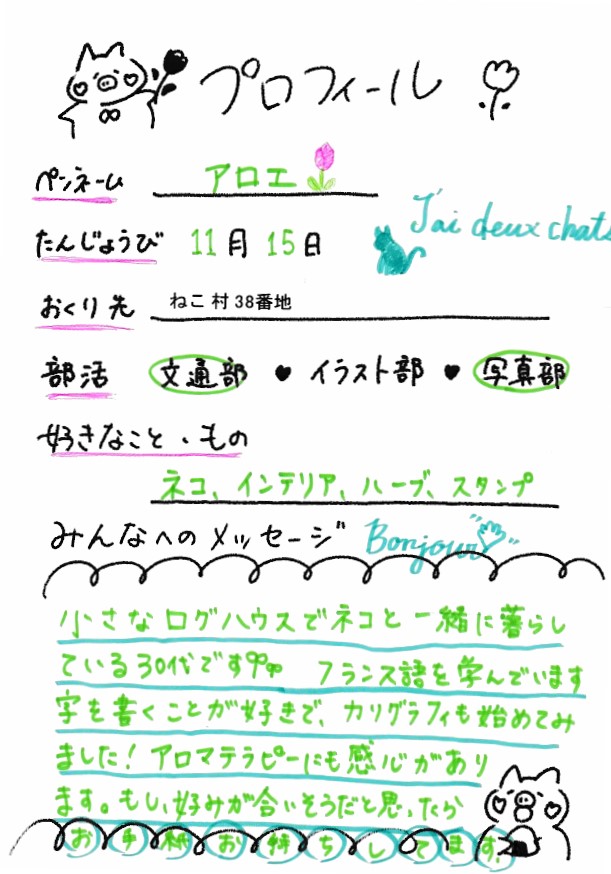 プロフィール
ペンネーム アロエ
J'ai deux chats
たんじょうび 11月 15日
おくり先 ねこ村38番地
部活 文通部 ♥ イラスト部 ♥ 写真部
好きなこと、もの
ネコ、インテリア、ハーブ、スタンプ
みんなへのメッセージ Bonjour
小さなログハウスでネコと一緒に暮らし
ている30代です フランス語を学んでいます
字を書くことが好きで、カリグラフィも始めてみ
ました！アロマテラピーにも感心があり
ます。もし、好みが合いそうだと思ったら
お手紙お待ちしてます。